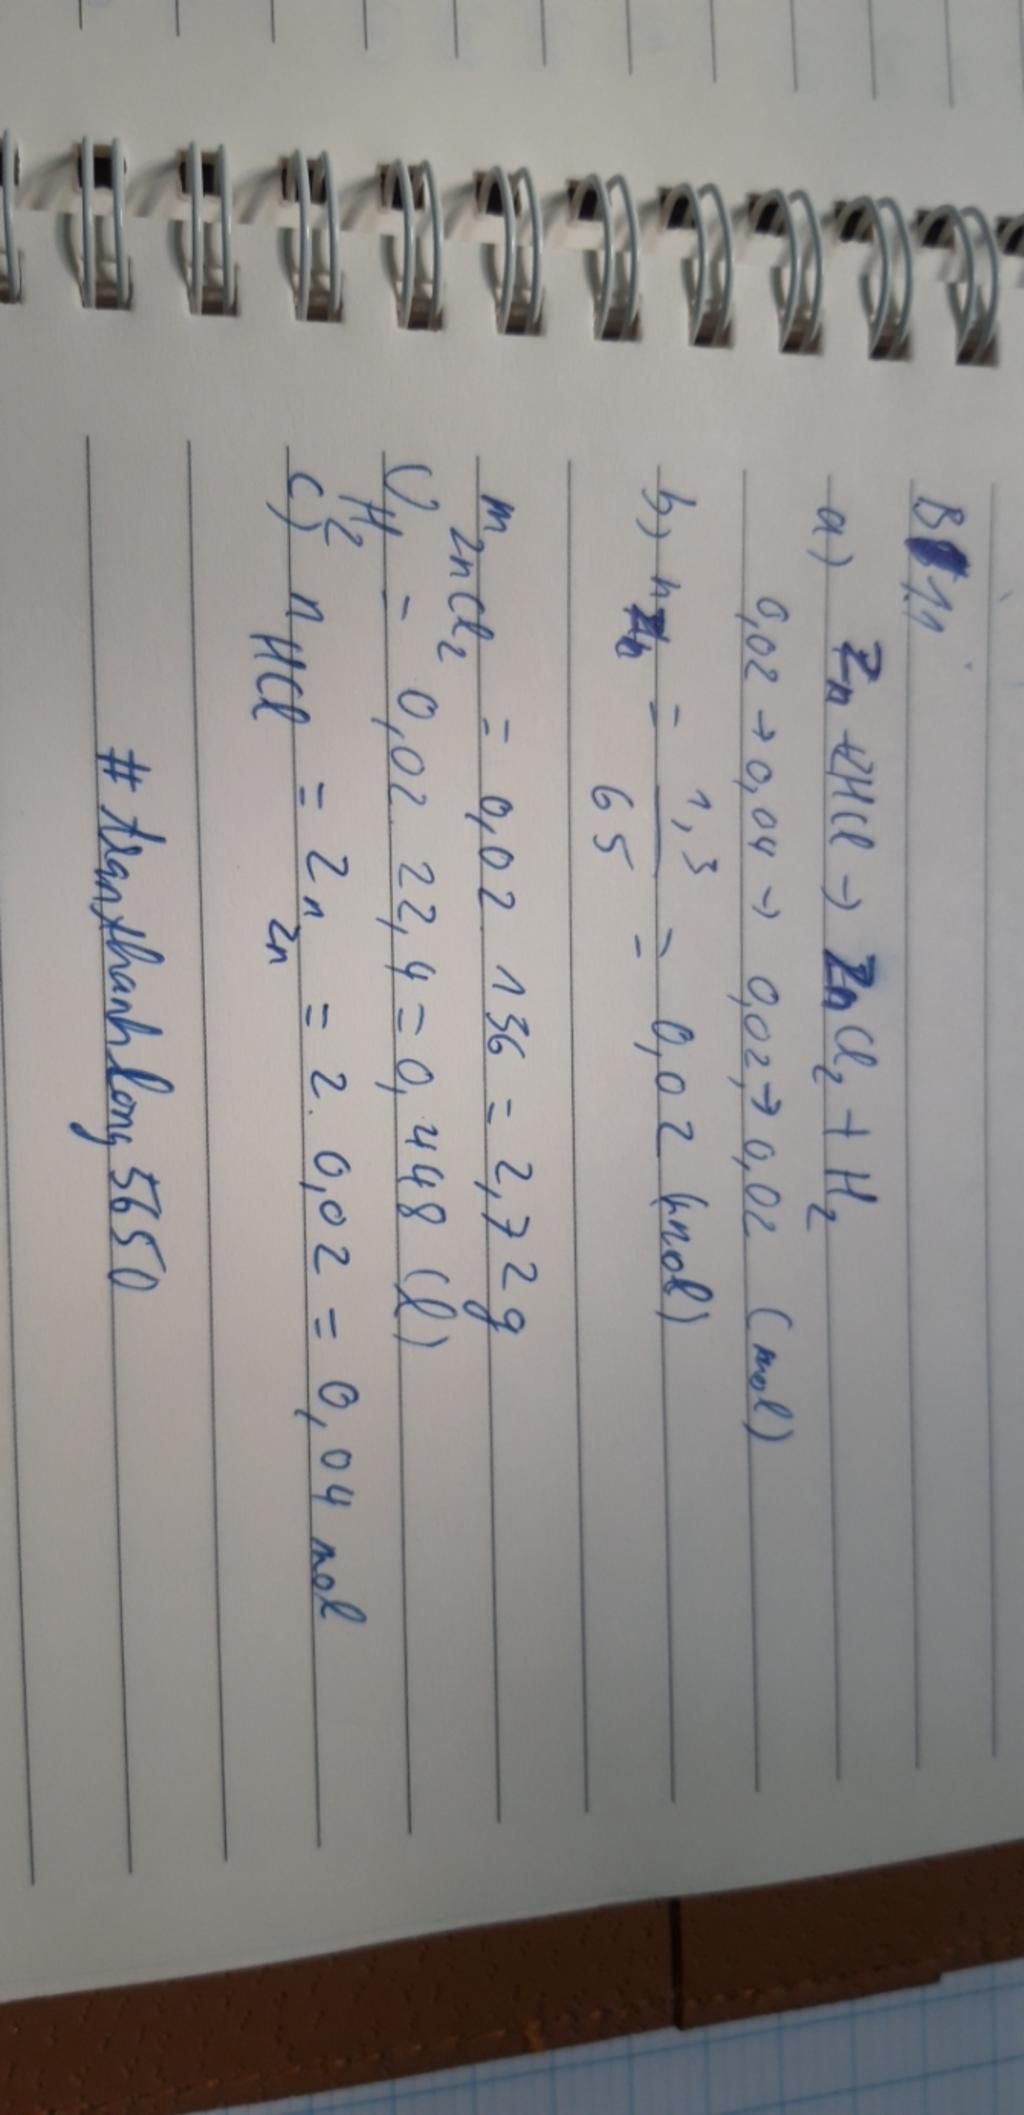 B 11
a) Zn + 2HCl → ZnCl₂ + H₂
0,02 → 0,04 → 0,02 → 0,02 (mol)
b) nZn = 1,3/65 = 0,02 (mol)
mZnCl₂ = 0,02 . 136 = 2,72g
VH₂ = 0,02 . 22,4 = 0,448 (l)
c) nHCl = 2nZn = 2. 0,02 = 0,04 mol
# tranthanhlong5650